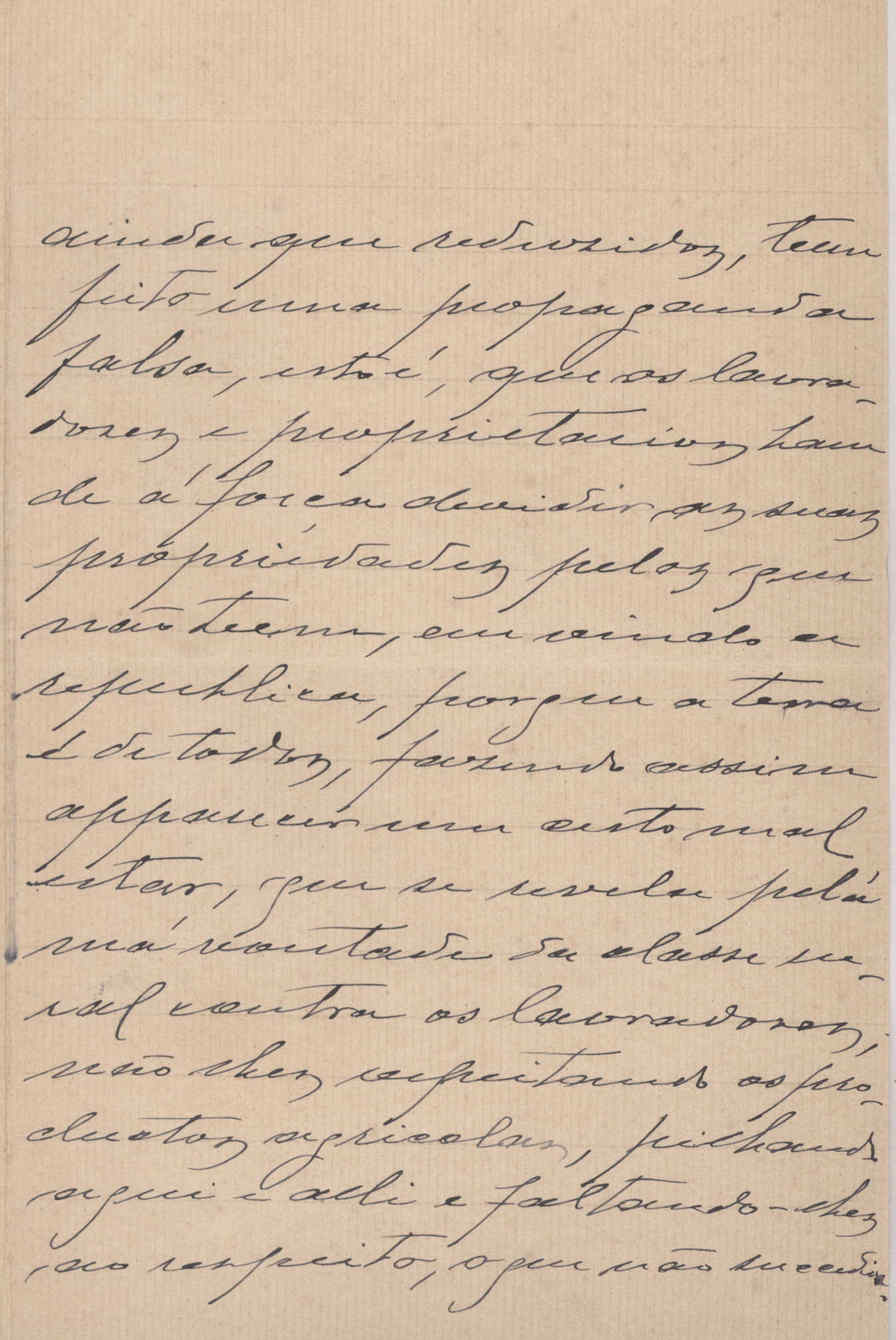 ainda que redusidos, teem
feito uma propaganda
falsa, isto é, que os lavra-
dores e proprietarios ham
de á força devidir as suas
propriédades pelos que
não teem, em vindo a
republica, porque a terra
é de todos, fasendo assim
apparecer um certo mal
estar, que se revela pela
má vontade da classe ru-
ral contra os lavradores,
não lhes respeitando os pro-
ductos agricolas, pilhando
aqui e alli e faltando-lhes
ao respeito, o que não succedia